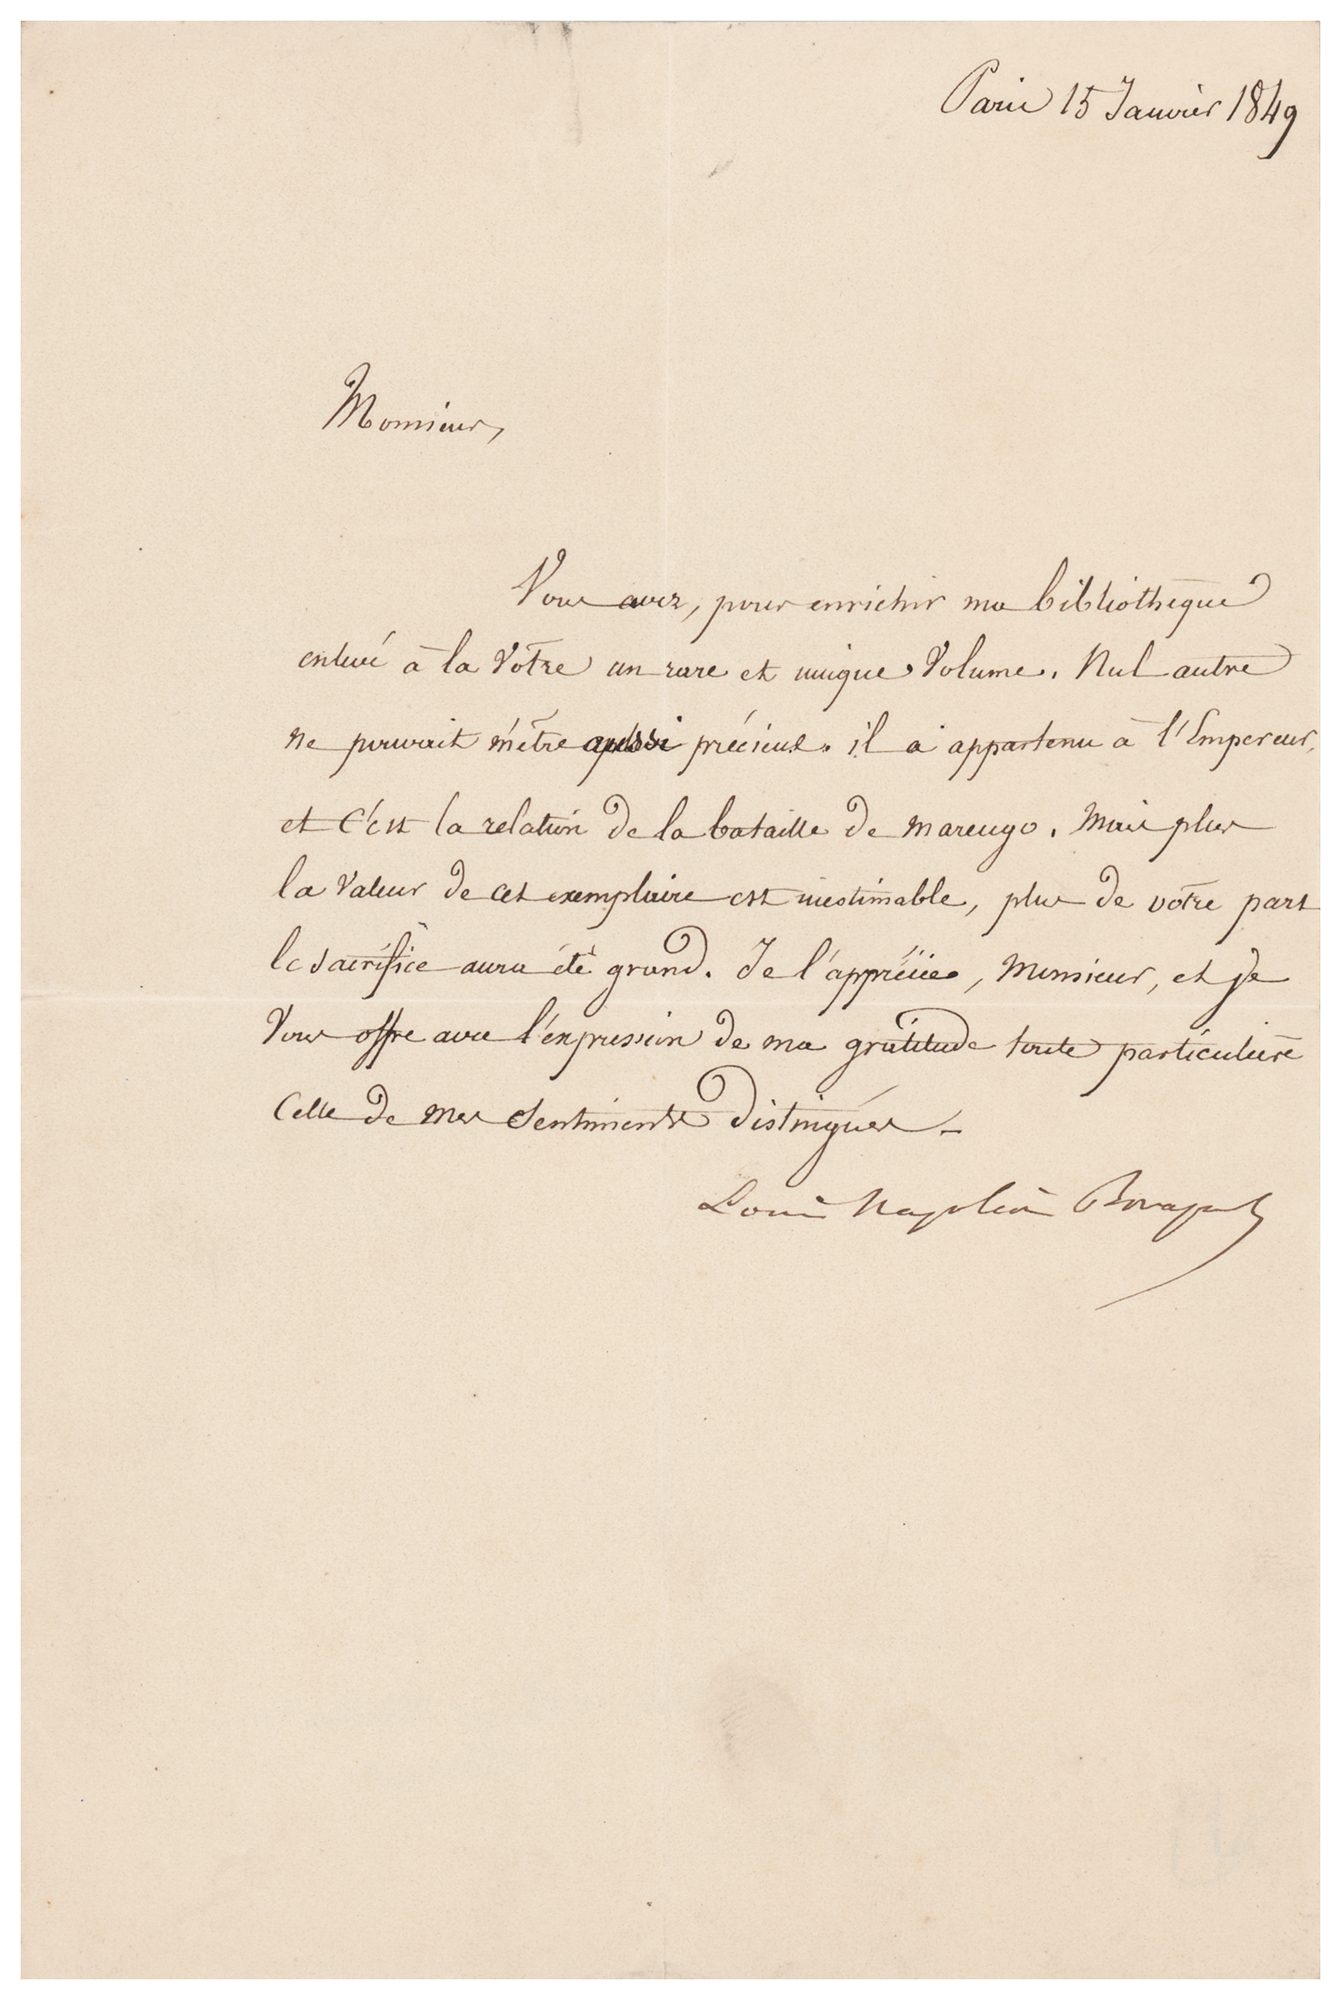 Paris 15 Janvier 1849
Monsieur,
Vous avez, pour enrichir ma bibliothèque
enlevé à la Vôtre un rare et unique Volume. Nul autre
ne pouvait m'être aussi précieux. il a appartenu à l'Empereur,
et c'est la relation de la bataille de Marengo. Mais plus
la Valeur de cet exemplaire est inestimable, plus de vôtre part
le sacrifice aura été grand. Je l'apprécie, Monsieur, et je
Vous offre avec l'expression de ma gratitude toute particulière
Celle de mes Sentiments distingués –
Louis Napoléon Bonaparte